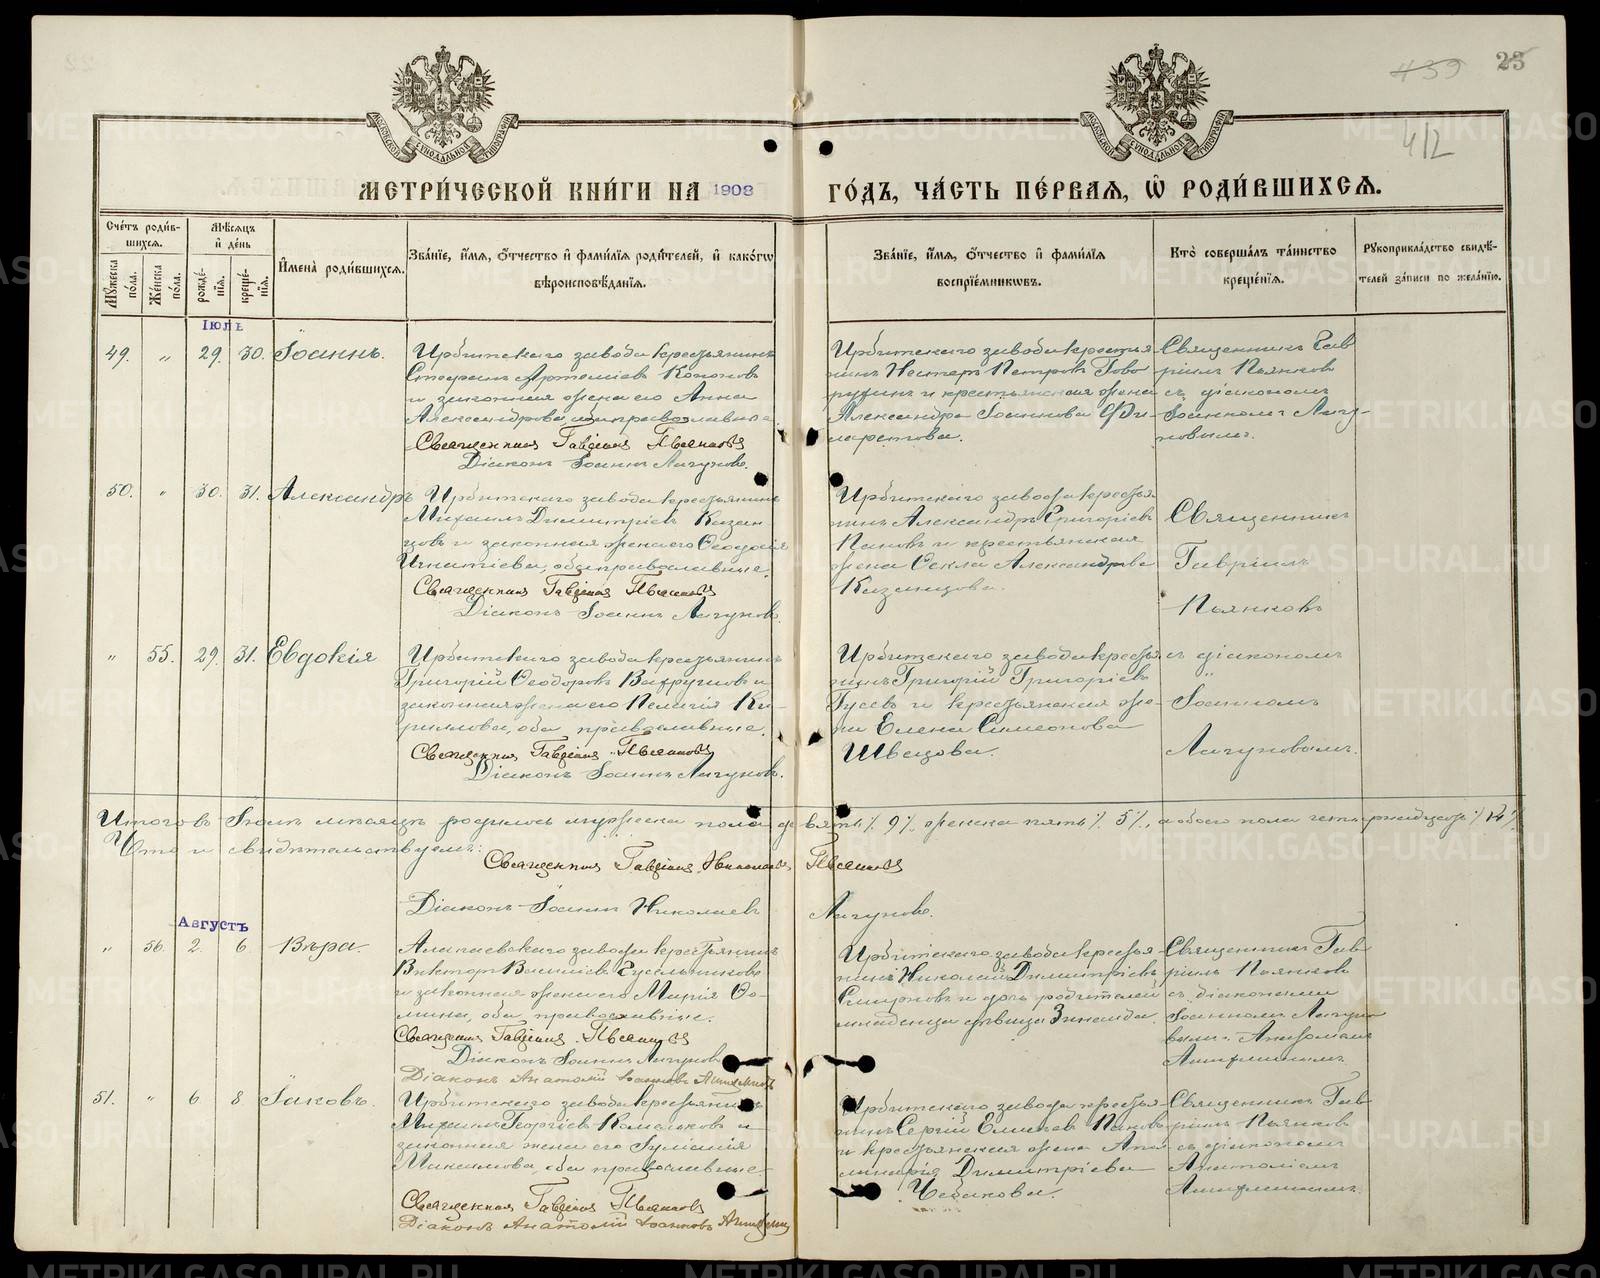 23
439
412
МЕТРИ́ЧЕСКОЙ КНИ́ГИ НА 1908 ГО́ДЪ, ЧА́СТЬ ПЕ́РВАѦ, Ѡ҆ РОДИ́ВШИХСѦ.
Сче́тъ роди́вшихсѧ.
Мужеска по́ла.
Же́нска по́ла.
Мѣ́сѧцъ и҆ де́нь
рожде́нїѧ.
креще́нїѧ.
И҆мена̀ роди́вшихсѧ.
Зва́нїе, и҆́мѧ, ѻ҆́тчество и҆ фамі́лїѧ роди́телей, и҆ како́гѡ
вѣроисповѣ́данїѧ.
Зва́нїе, и҆́мѧ, ѻ҆́тчество и҆ фамі́лїѧ
воспрїе́мникѡвъ.
Кто̀ соверша́лъ та́инство
креще́нїѧ.
Рꙋкоприкла́дство свидѣ́-
телей за́писи по жела́нїю.
Іюль
49. „ 29. 30. Іоаннъ.
Ирбитскаго завода крестьянинъ
Стефанъ Артеміевъ Кононовъ
и законная жена его Анна
Александрова, оба православные.
Священникъ Гавріилъ Пьянковъ
Діаконъ Іоаннъ Лагуновъ.
Ирбитскаго завода крестья-
нинъ Несторъ Петровъ Гово
рухинъ и крестьянская жена
Александра Іоаннова Фи-
ларетова.
Священникъ Гав
ріилъ Пьянковъ
съ діакономъ
Іоанномъ Лагу-
новымъ.
50. „ 30. 31. Александръ
Ирбитскаго завода крестьянинъ
Михаилъ Димитріевъ Казан
цовъ и законная жена его Ѳеодосія
Игнатіева, оба православные.
Священникъ Гавріилъ Пьянковъ
Діаконъ Іоаннъ Лагуновъ.
Ирбитскаго завода крестья-
нинъ Александръ Григоріевъ
Пановъ и крестьянская
жена Ѳекла Александрова
Казанцова.
Священникъ
Гавріилъ
Пьянковъ
„ 55. 29. 31. Евдокія
Ирбитскаго завода крестьянинъ
Григорій Ѳеодоровъ Вахрушовъ и
законная жена его Пелагія Ки-
риллова, оба православные.
Священникъ Гавріилъ Пьянковъ
Діаконъ Іоаннъ Лагуновъ.
Ирбитскаго завода крестья-
нинъ Григорій Григоріевъ
Гусевъ и крестьянская же-
на Елена Симеонова
Швецова.
съ діакономъ
Іоанномъ
Лагуновымъ.
Итого въ Іюлѣ мѣсяцѣ родилось мужеска пола девять % 9 %, женска пять % 5 %, а обоего пола четырнадцать % 14 %
Что и свидѣтельствуемъ:
Священникъ Гавріилъ Николаевъ Пьянковъ
Діаконъ Іоаннъ Николаевъ Лагуновъ.
Августъ
„ 56. 2 6 Вѣра.
Алапаевскаго завода крестьянинъ
Викторъ Василіевъ Гусельниковъ
и законная жена его Марія Ѳо-
мина, оба православные.
Священникъ Гавріилъ Пьянковъ
Діаконъ Іоаннъ Лагуновъ
Діаконъ Анатолій Іоанновъ
Ирбитскаго завода крестья-
нинъ Николай Димитріевъ
Смирновъ и дочь родителей
младенца дѣвица Зинаида.
Священникъ Гав
ріилъ Пьянковъ
съ діаконами
Іоанномъ Лагуно
вымъ и Анатоліемъ
51. „ 6 8 Іаковъ.
Ирбитскаго завода крестьянинъ
Михаилъ Георгіевъ Комельковъ и
законная жена его Іуліанія
Максимова, оба православные.
Священникъ Гавріилъ Пьянковъ
Діаконъ Анатолій Іоанновъ
Ирбитскаго завода крестья-
нинъ Сергій Елисеевъ Пановъ
и крестьянская жена Апол-
линарія Димитріева
Чебакова.
Священникъ Гав
ріилъ Пьянковъ
съ діакономъ
Анатоліемъ